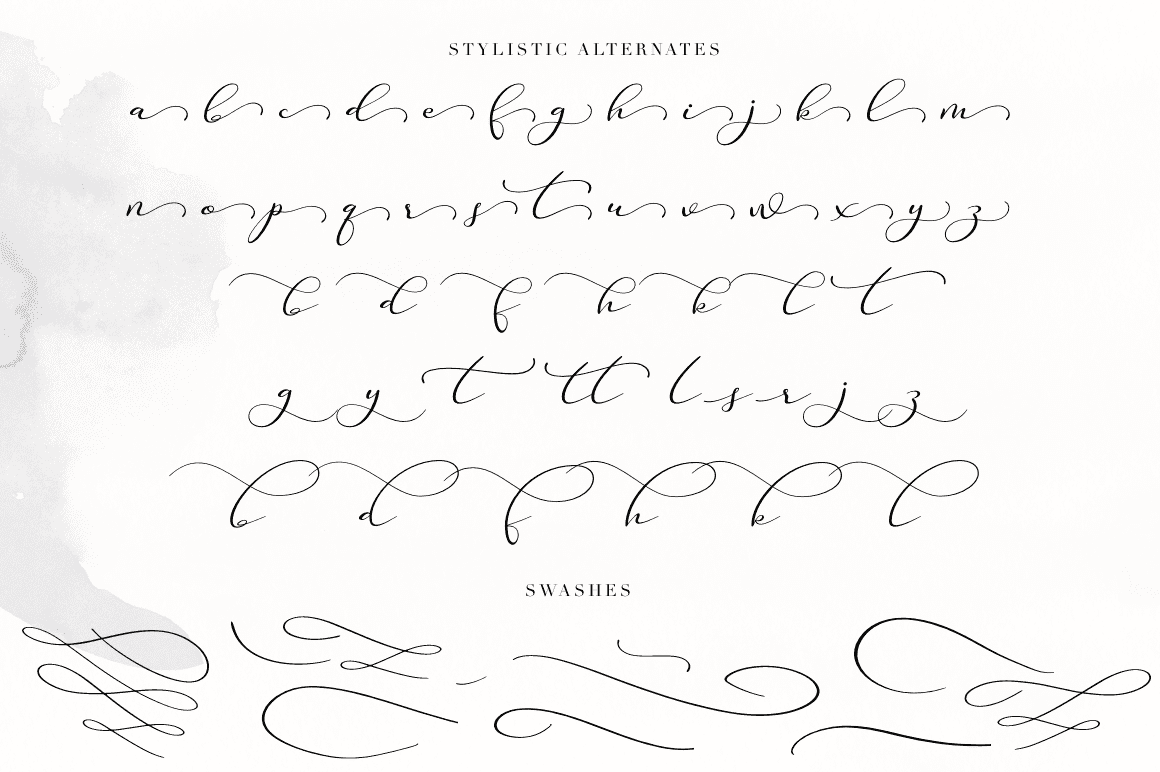 STYLISTIC ALTERNATES
a b c d e f g h i j k l m
n o p q r s t u v w x y z
b d f h k l t
g y t tt l s r j z
b d f h k l
SWASHES